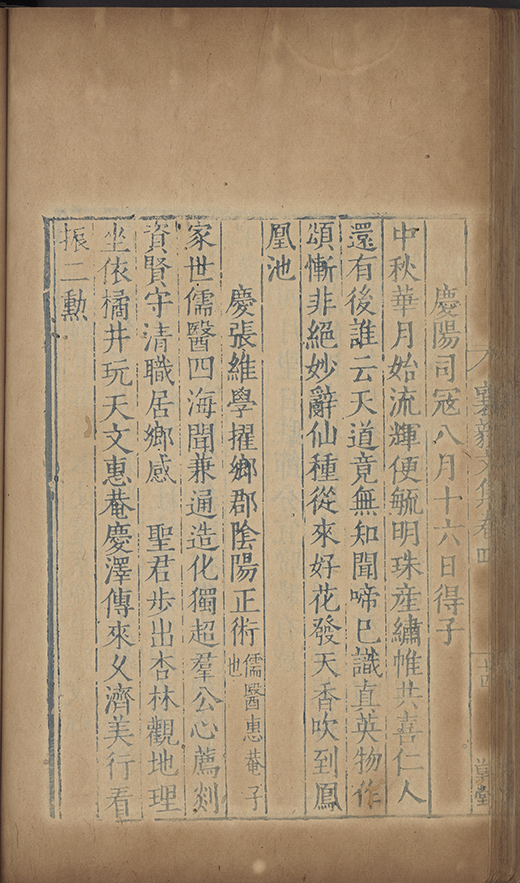 襄毅文集卷四
慶陽司冦八月十六日得子
中秋華月始流輝便毓明珠産繡帷共喜仁人
還有後誰云天道竟無知聞啼已識真英物作
頌慚非絕妙辭仙種從來好花發天香吹到鳳
凰池
慶張維學擢鄉郡陰陽正術儒醫惠菴子也
家世儒醫四海聞兼通造化獨超羣公心薦剡
資賢守清職居鄉感 聖君步出杏林觀地理
坐依橘井玩天文惠菴慶澤傳來乆濟美行看
振二勳